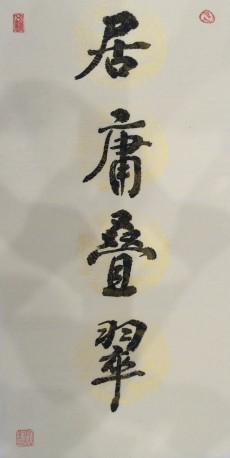 居庸叠翠